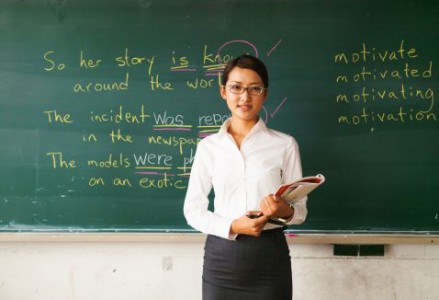 So her story is
around the
The incident was
in the
The models were
on an exotic
motivate
motivated
motivating
motivation